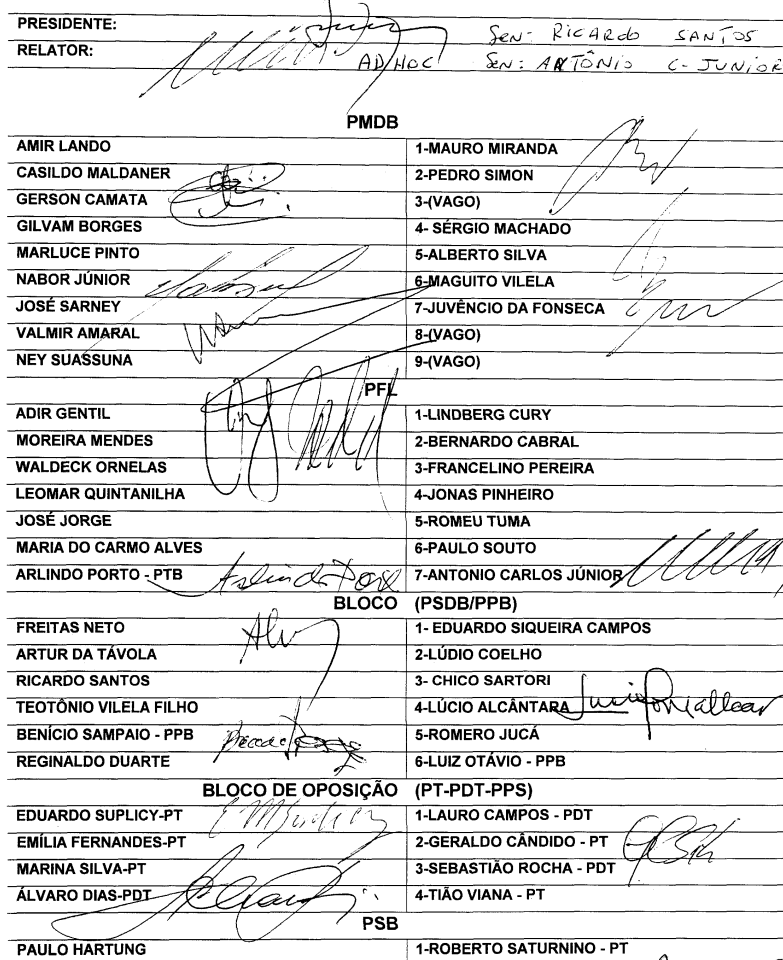 PRESIDENTE: Sen: RICARDO SANTOS
RELATOR: AD/HOC Sen: ANTÔNIO C- JUNIOR
PMDB
AMIR LANDO 1-MAURO MIRANDA
CASILDO MALDANER 2-PEDRO SIMON
GERSON CAMATA 3-(VAGO)
GILVAM BORGES 4- SÉRGIO MACHADO
MARLUCE PINTO 5-ALBERTO SILVA
NABOR JÚNIOR 6-MAGUITO VILELA
JOSÉ SARNEY 7-JUVÊNCIO DA FONSECA
VALMIR AMARAL 8-(VAGO)
NEY SUASSUNA 9-(VAGO)
PFL
ADIR GENTIL 1-LINDBERG CURY
MOREIRA MENDES 2-BERNARDO CABRAL
WALDECK ORNELAS 3-FRANCELINO PEREIRA
LEOMAR QUINTANILHA 4-JONAS PINHEIRO
JOSÉ JORGE 5-ROMEU TUMA
MARIA DO CARMO ALVES 6-PAULO SOUTO
ARLINDO PORTO - PTB 7-ANTONIO CARLOS JÚNIOR
BLOCO (PSDB/PPB)
FREITAS NETO 1- EDUARDO SIQUEIRA CAMPOS
ARTUR DA TÁVOLA 2-LÚDIO COELHO
RICARDO SANTOS 3- CHICO SARTORI
TEOTÔNIO VILELA FILHO 4-LÚCIO ALCÂNTARA
BENÍCIO SAMPAIO - PPB 5-ROMERO JUCÁ
REGINALDO DUARTE 6-LUIZ OTÁVIO - PPB
BLOCO DE OPOSIÇÃO (PT-PDT-PPS)
EDUARDO SUPLICY-PT 1-LAURO CAMPOS - PDT
EMÍLIA FERNANDES-PT 2-GERALDO CÂNDIDO - PT
MARINA SILVA-PT 3-SEBASTIÃO ROCHA - PDT
ÁLVARO DIAS-PDT 4-TIÃO VIANA - PT
PSB
PAULO HARTUNG 1-ROBERTO SATURNINO - PT